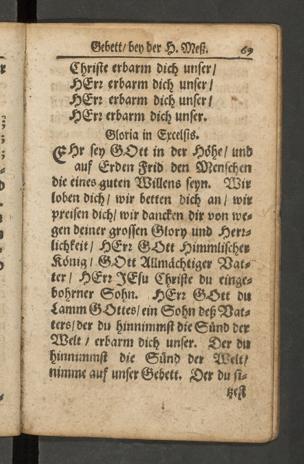 Gebett/ bey der H. Meß. 69
Christe erbarm dich unser/
HErr erbarm dich unser/
HErr erbarm dich unser/
HErr erbarm dich unser.
Gloria in Excelsis.
EHr sey GOtt in der Höhe/ und
auf Erden Frid den Menschen
die eines guten Willens seyn. Wir
loben dich/ wir betten dich an/ wir
preisen dich/ wir dancken dir von we-
gen deiner grossen Glory und Herr-
lichkeit/ HErr GOtt Himmlischer
König/ GOtt Allmächtiger Vat-
ter/ HErr JEsu Christe du einge-
bohrner Sohn. HErr GOtt du
Lamm GOttes/ ein Sohn deß Vat-
ters/ der du hinnimmst die Sünd der
Welt/ erbarm dich unser. Der du
hinnimmst die Sünd der Welt/
nimme auf unser Gebett. Der du si-
tzest